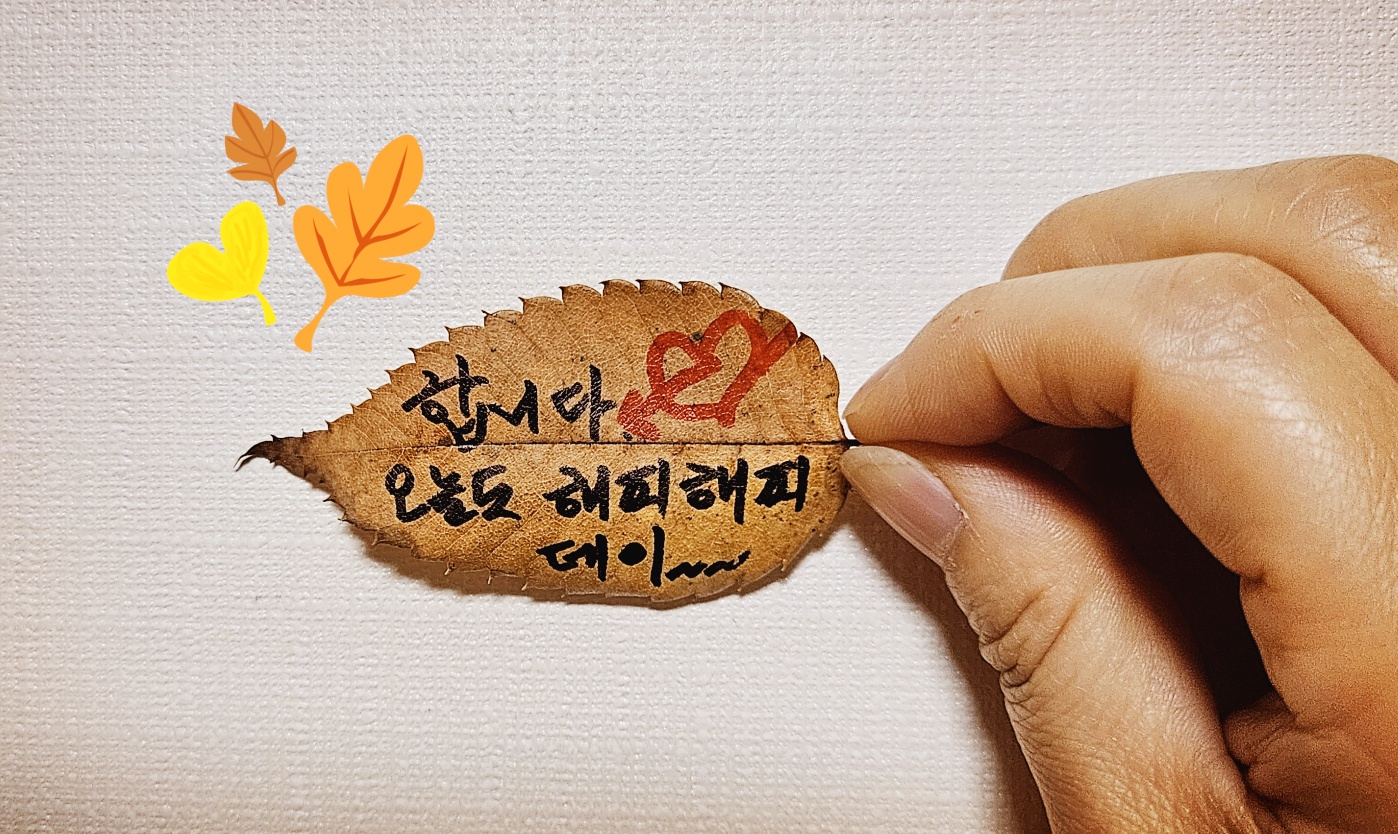 합니다.
오늘도 해피해피
데이~~